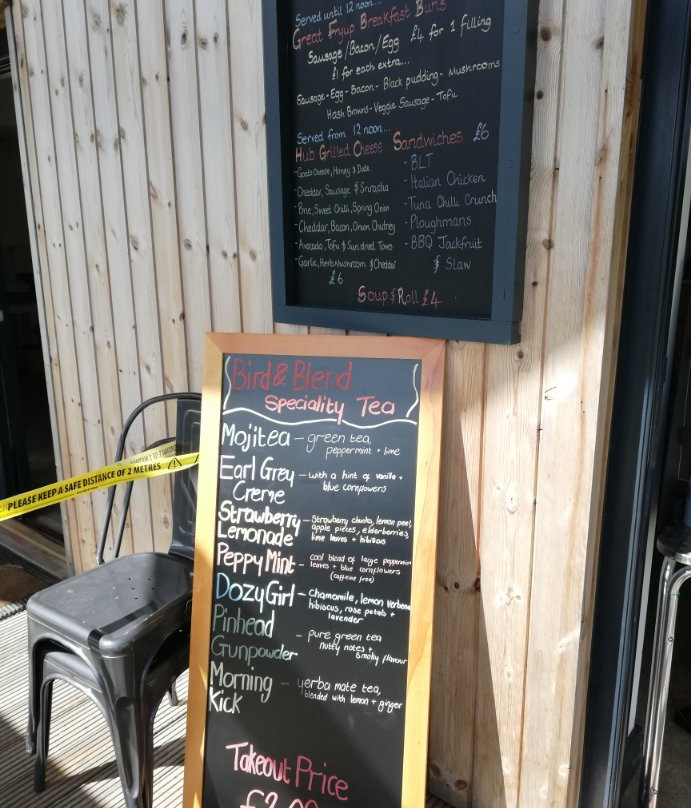 Served until 12 noon...
Great Fryup Breakfast Buns
Sausage/Bacon/Egg £4 for 1 filling
£1 for each extra...
Sausage - Egg - Bacon - Black pudding - Mushrooms
Hash Browns - Veggie Sausage - Tofu
Served from 12 noon...
Hub Grilled Cheese
- Goats Cheese, Honey & Date
- Cheddar, Sausage & Sriracha
- Brie, Sweet Chilli, Spring Onion
- Cheddar, Bacon, Onion Chutney
- Avocado, Tofu & Sun dried Toms
- Garlic, Herb Mushroom & Cheddar
£6
Sandwiches £6
- BLT
- Italian Chicken
- Tuna Chilli Crunch
- Ploughmans
- BBQ Jackfruit
& Slaw
Soup & Roll £4
Bird & Blend
Speciality Tea
Mojitea - green tea,
peppermint + lime
Earl Grey - with a hint of vanilla +
Creme blue cornflowers
Strawberry - Strawberry chunks, lemon peel,
Lemonade apple pieces, elderberries,
lime leaves + hibiscus
Peppy Mint - cool blend of large peppermint
leaves + blue cornflowers
(caffeine free)
Dozy Girl - chamomile, lemon verbena
hibiscus, rose petals +
lavender
Pinhead - pure green tea
Gunpowder nutty notes +
smoky flavour
Morning - yerba mate tea,
Kick blended with lemon + ginger
Takeout Price
PLEASE KEEP A SAFE DISTANCE OF 2 METRES